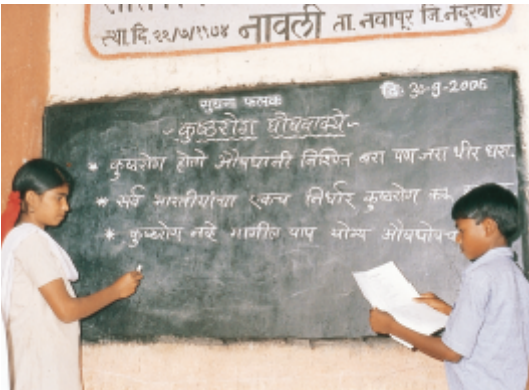 स्था. दि. २२/७/१९७४ नावली ता. नवापूर जि. नंदुरबार
सुचना फलक
दि. 30-9-2006
- कुष्ठरोग घोषवाक्ये -
* कुष्ठरोग होणे औषधानी निश्चित बरा पण जरा धीर धरा.
* सर्व भारतीयांचा एकच निर्धार कुष्ठरोग करू
* कुष्ठरोग नव्हे मागील पाप योग्य